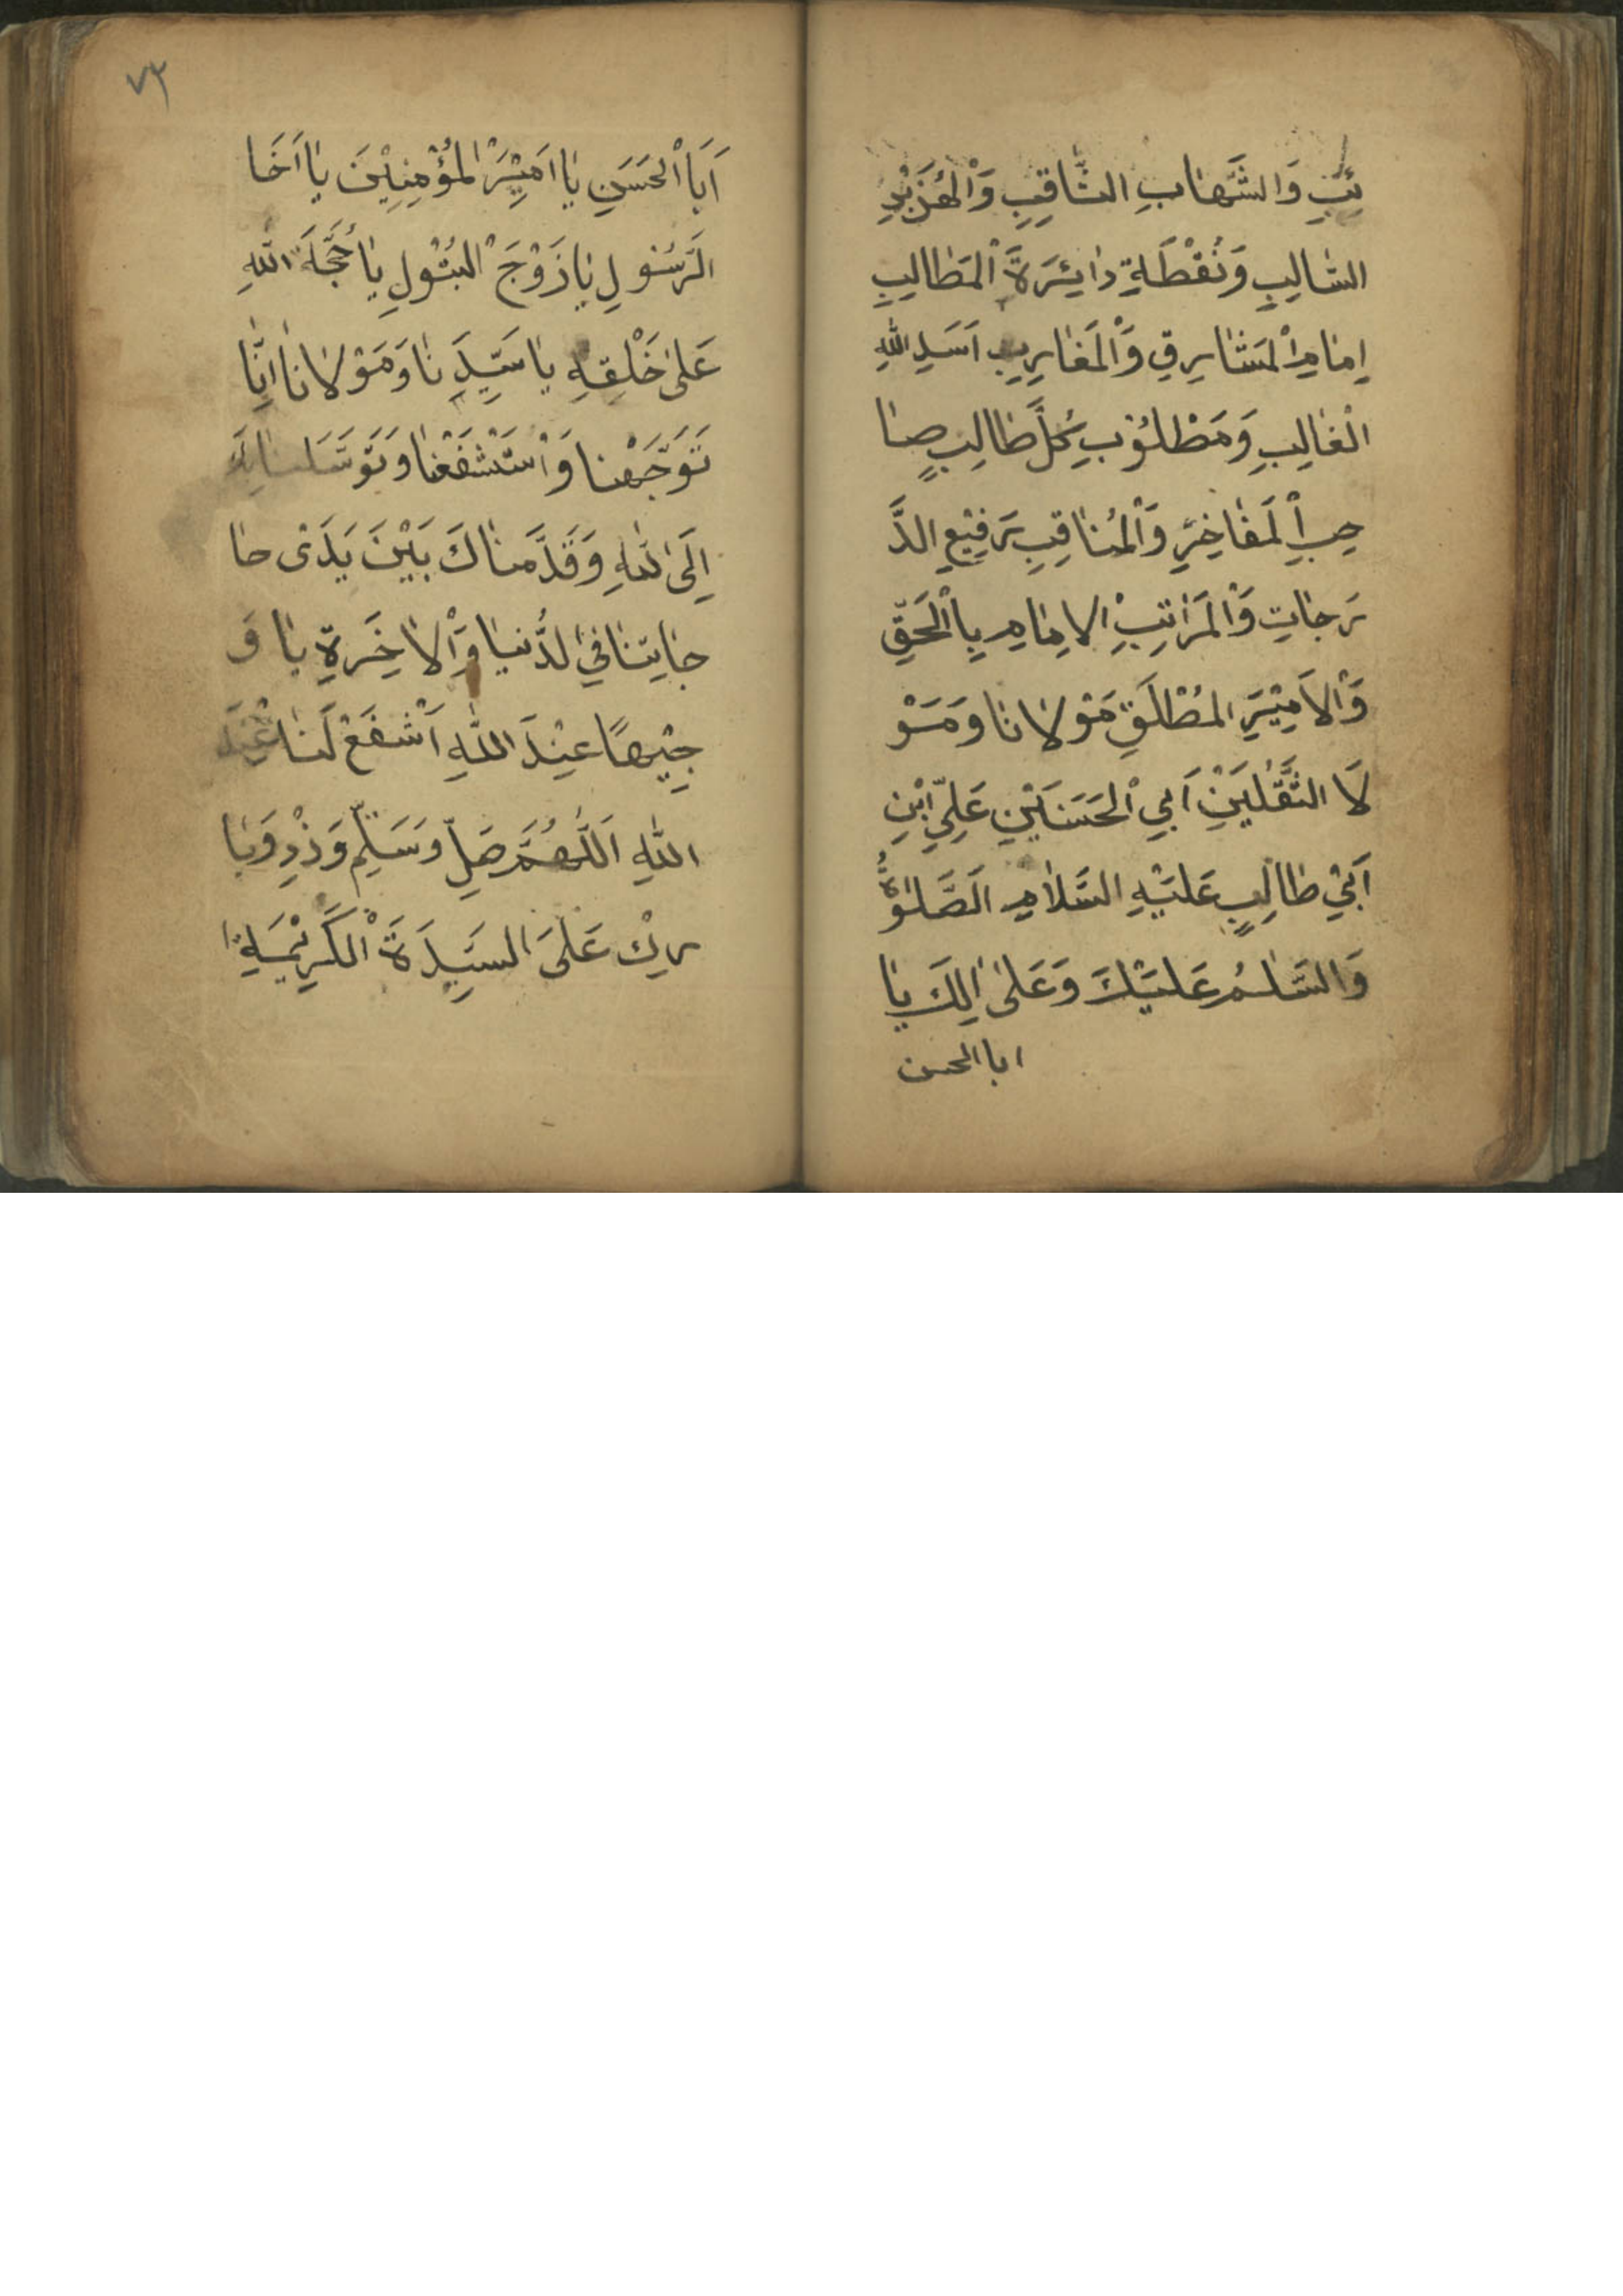 ئِبِ وَالشَّهَابِ الثَّاقِبِ وَالْهِزَبْرِ
السَّالِبِ وَنُقْطَةِ دَائِرَةِ الْمَطَالِبِ
اِمَامِ الْمَشَارِقِ وَالْمَغَارِبِ اَسَدِ اللهِ
الْغَالِبِ وَمَطْلُوْبِ كُلِّ طَالِبٍ صَا
حِبِ الْمَفَاخِرِ وَالْمَنَاقِبِ رَفِيْعِ الدَّ
رَجَاتِ وَالْمَرَاتِبِ الاِمَامِ بِالْحَقِّ
وَالْاَمِيْرِ الْمُطْلَقِ مَوْلَانَا وَمَوْ
لَا الثَّقَلَيْنِ اَبِي الْحَسَنَيْنِ عَلِيِّ ابْنِ
اَبِيْ طَالِبٍ عَلَيْهِ السَّلَامِ اَلصَّلٰوةُ
وَالسَّلٰمُ عَلَيْكَ وَعَلٰى اٰلِكَ يَا
ابا الحسن
٧٣
اَبَا الْحَسَنِ يَا اَمِيْرَ الْمُؤْمِنِيْنَ يَا اَخَا
الرَّسُوْلِ يَا زَوْجَ الْبَتُوْلِ يَا حُجَّةَ اللهِ
عَلٰى خَلْقِهِ يَا سَيِّدَنَا وَمَوْلَانَا اِنَّا
تَوَجَّهْنَا وَاسْتَشْفَعْنَا وَتَوَسَّلْنَا بِكَ
اِلَى اللهِ وَقَدَّمْنَاكَ بَيْنَ يَدَىْ حَا
جَاتِنَا فِي الدُّنْيَا وَالْاٰخِرَةِ يَا وَ
جِيْهًا عِنْدَ اللهِ اَشْفَعْ لَنَا عِنْدَ
اللهِ اَللّٰهُمَّ صَلِّ وَسَلِّمْ وَزْدِ وَبَا
رِكْ عَلَى السَيِّدَةِ الْكَرِيْمَةِ ا